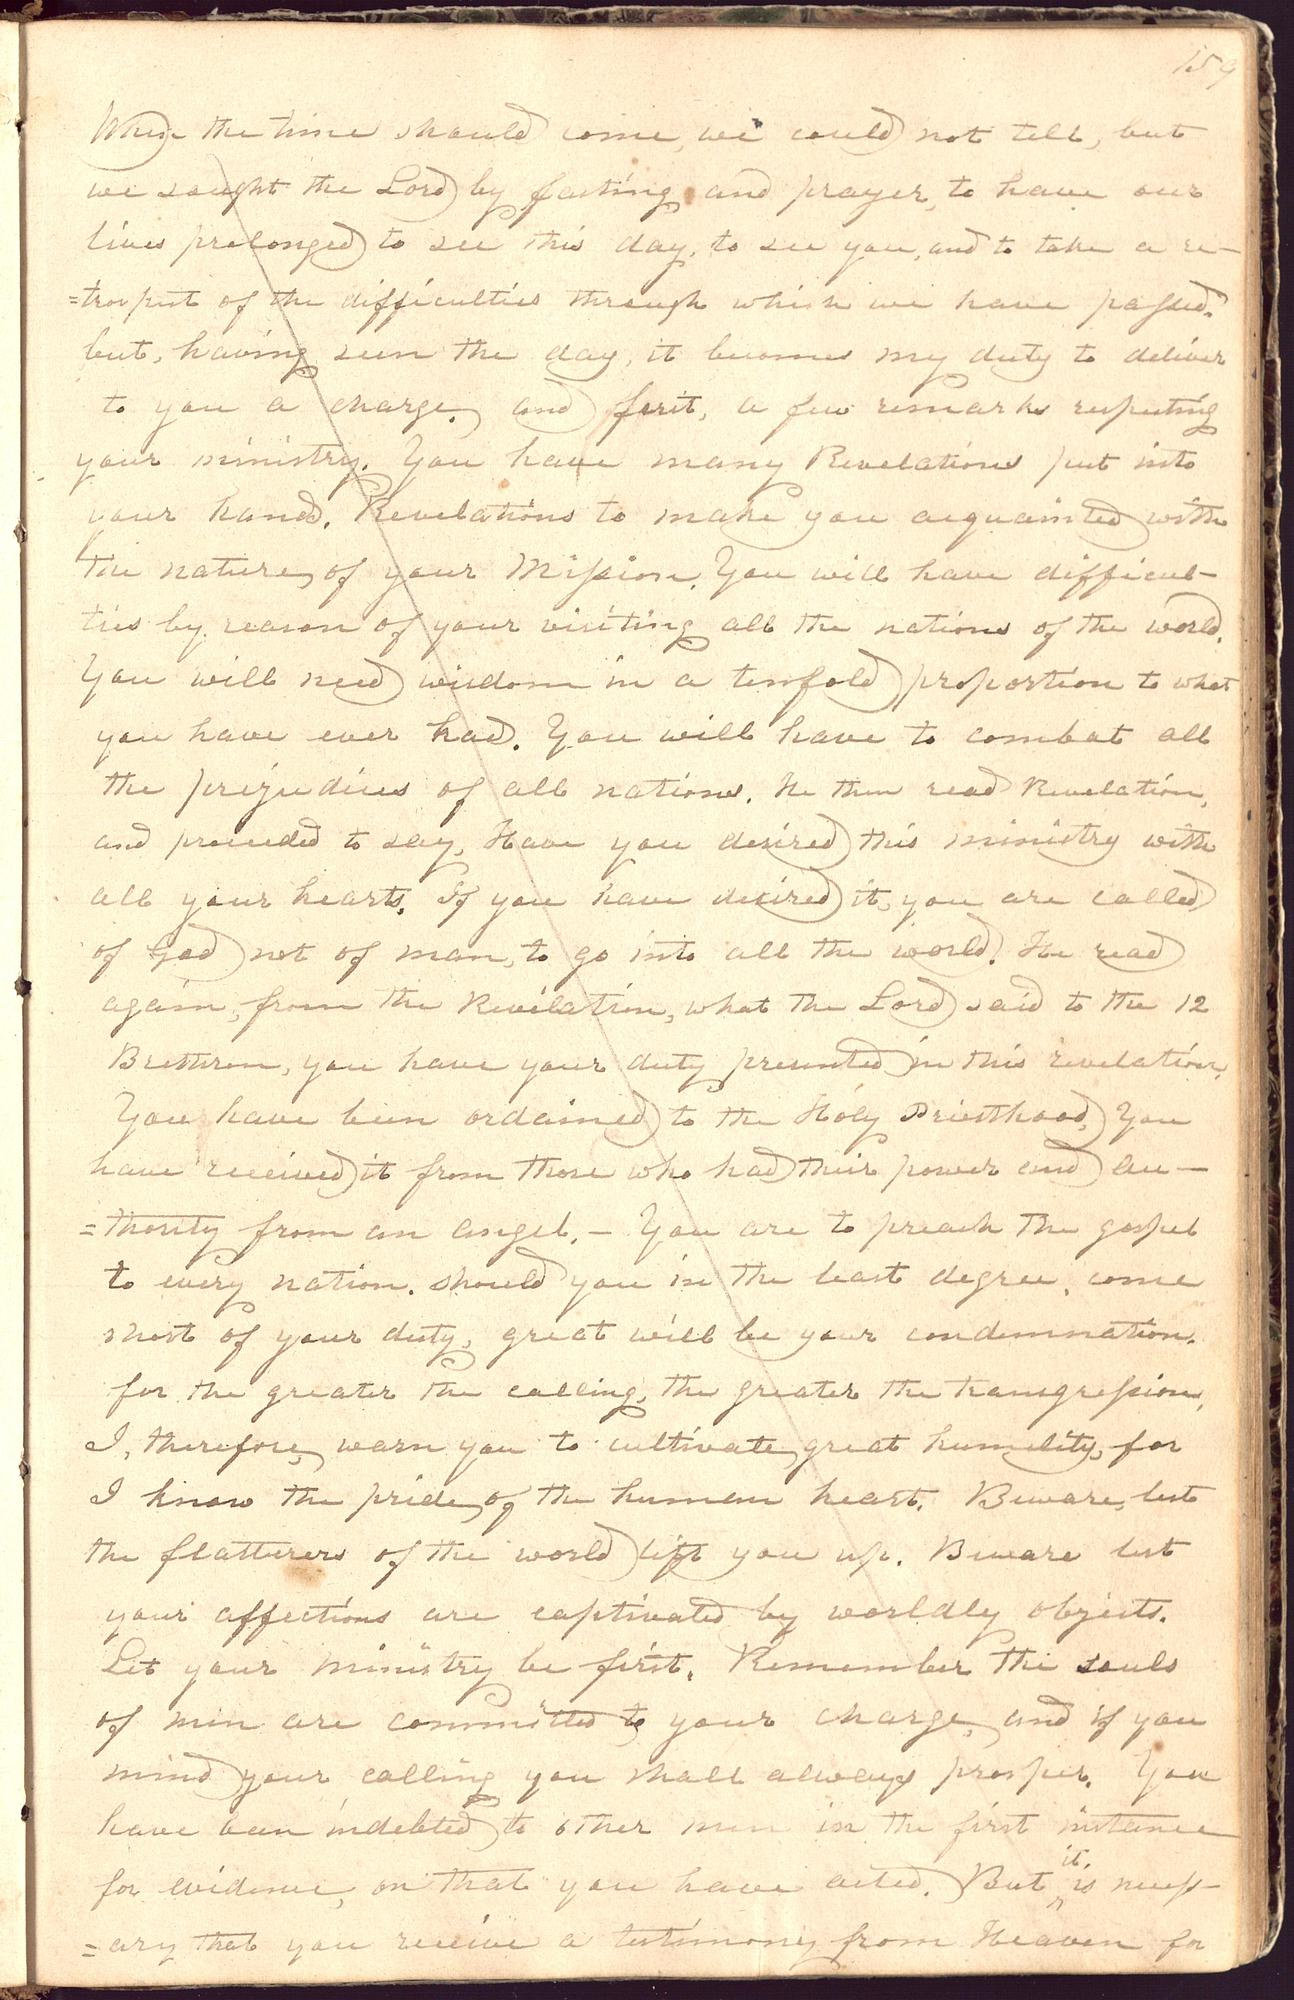 159
When the time should come, we could not tell, but
we sought the Lord by fasting and prayer, to have our
lives prolonged to see this day, to see you, and to take a re-
=trospect of the difficulties through which we have passed.
but, having seen the day, it becomes my duty to deliver
to you a charge, and first, a few remarks respecting
your ministry. You have many Revelations put into
your hands. Revelations to make you acquainted with
the nature, of your Mission. You will have difficul-
ties by reason of your visiting all the nations of the world.
You will need wisdom in a tenfold proportion to what
you have ever had. You will have to combat all
the prejudices of all nations. He then read Revelation,
and proceeded to say, Have you desired this ministry with
all your hearts. If you have desired it, you are called
of God, not of man, to go into all the world. He read
again, from the Revelation, what the Lord said to the 12
Brethren, you have your duty presented in this revelation.
You have been ordained to the Holy Priesthood, You
have received it from those who had their power and au-
=thority from an angel. – You are to preach the gospel
to every nation. should you in the least degree, come
short of your duty, great will be your condemnation.
for the greater the calling, the greater the transgression,
I, therefore, warn you to cultivate, great humility, for
I know the pride, of the human heart. Beware, lest
the flatterers of the world lift you up. Beware lest
your affections are captivated by worldly objects.
Let your ministry be first. Remember the souls
of men are committed to your charge, and if you
mind your calling you shall always prosper. You
have been indebted to other men in the first instance
for evidence, on that you have acted. But it, is necess-
=ary that you receive a testimony from Heaven for